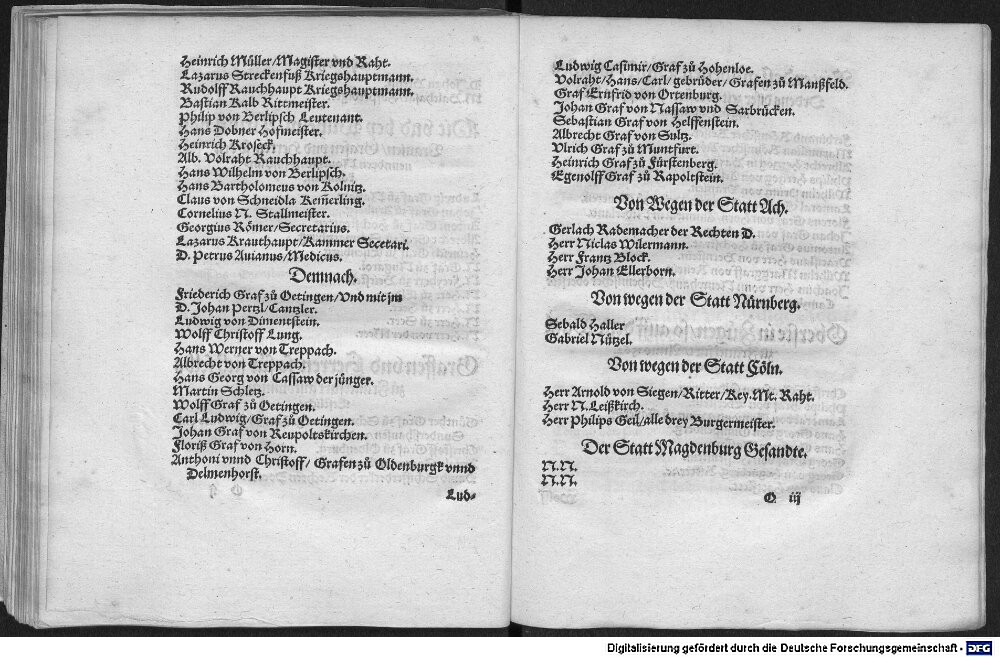 Heinrich Müller/Magister vnd Raht.
Lazarus Streckenfuß Kriegshauptmann.
Rudolff Rauchhaupt Kriegshauptmann.
Bastian Kalb Rittmeister.
Philip von Berlipsch Leutenant.
Hans Dobner Hofmeister.
Heinrich Kroseck.
Alb. Volraht Rauchhaupt.
Hans Wilhelm von Berlipsch.
Hans Bartholomeus von Kolnitz.
Claus von Schneidla Keinerling.
Cornelius N. Stallmeister.
Georgius Römer/Secretarius.
Lazarus Krauthaupt/Kammer Secetari.
D. Petrus Auianus/Medicus.
Demnach.
Friederich Graf zů Oetingen/Vnd mit jm
D. Johan Pertzl/Cantzler.
Ludwig von Dimentstein.
Wolff Christoff Lung.
Hans Werner von Treppach.
Albrecht von Treppach.
Hans Georg von Cassaw der jünger.
Martin Schletz.
Wolff Graf zů Oetingen.
Carl Ludwig/Graf zů Oetingen.
Johan Graf von Reupoltskirchen.
Floriß Graf von Horn.
Anthoni vnnd Christoff/ Grafen zů Oldenburgk vnnd
Delmenhorst.
Lud-
Ludwig Casimir/Graf zů Hohenloe.
Volraht/Hans/Carl/gebrüder/Grafen zů Manßfeld.
Graf Ernfrid von Ortenburg.
Johan Graf von Nassaw vnd Sarbrücken.
Sebastian Graf von Helffenstein.
Albrecht Graf von Sultz.
Vlrich Graf zů Muntfurt.
Heinrich Graf zů Fürstenberg.
Egenolff Graf zů Rapoltstein.
Von Wegen der Statt Ach.
Gerlach Rademacher der Rechten D.
Herr Niclas Wilermann.
Herr Frantz Block.
Herr Johan Ellerborn.
Von wegen der Statt Nürnberg.
Sebald Haller
Gabriel Nützel.
Von wegen der Statt Cöln.
Herr Arnold von Siegen/Ritter/Key. Mt. Raht.
Herr N. Leißkirch.
Herr Philips Geil/alle drey Burgermeister.
Der Statt Magdenburg Gesandte.
N.N.
N.N.
O iij
Digitalisierung gefördert durch die Deutsche Forschungsgemeinschaft - DFG